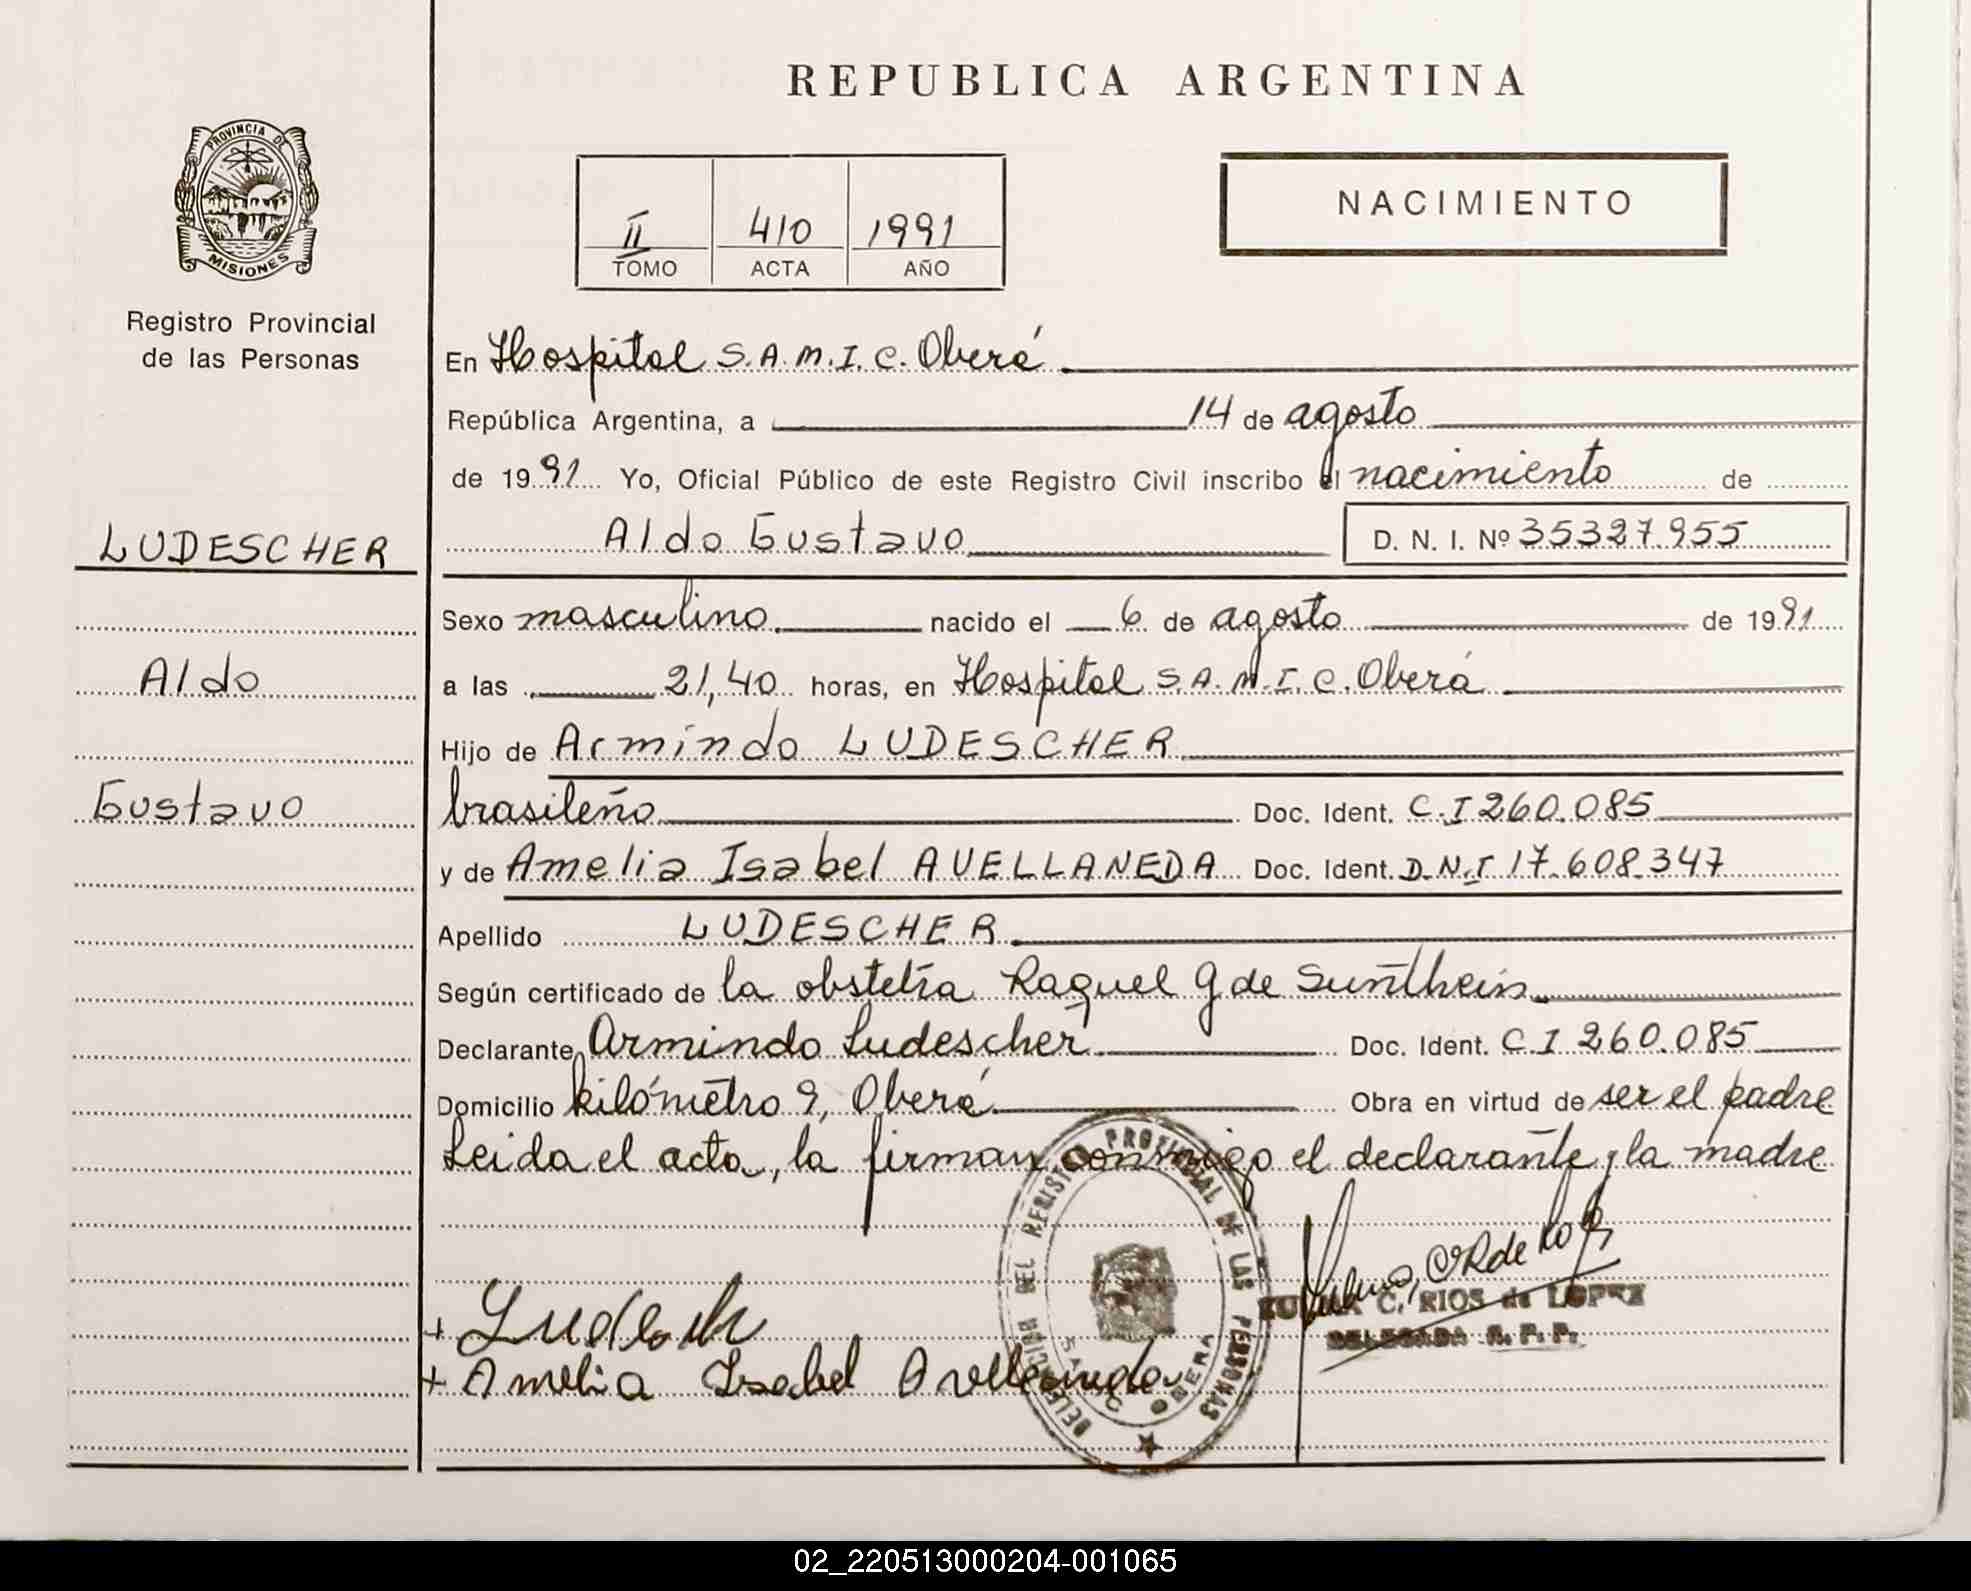 REPUBLICA ARGENTINA
PROVINCIA DE
MISIONES
Registro Provincial
de las Personas
II 410 1991
TOMO ACTA AÑO
NACIMIENTO
En Hospital S.A.M.I.C. Oberá
República Argentina, a 14 de agosto
de 1991 Yo, Oficial Público de este Registro Civil inscribo el nacimiento de
LUDESCHER
Aldo Gustavo D. N. I. Nº 35327.955
Sexo masculino nacido el 6 de agosto de 1991
Aldo
a las 21,40 horas, en Hospital S.A.M.I.C. Oberá
Hijo de Armindo LUDESCHER
Gustavo
brasileño Doc. Ident. C.I 260.085
y de Amelia Isabel AVELLANEDA Doc. Ident. D.N.I 17.608.347
Apellido LUDESCHER
Según certificado de la obstetra Raquel G de
Declarante Armindo Ludescher Doc. Ident. C I 260.085
Domicilio kilómetro 9, Oberá Obra en virtud de ser el padre
Leida el acta, la firman conmigo el declarante y la madre
DELEGACION DEL REGISTRO PROVINCIAL DE LAS PERSONAS
OBERA
C. RIOS de LOPEZ
DELEGADA R. P. P.
+ Amelia Isabel Avellaneda
02_220513000204-001065